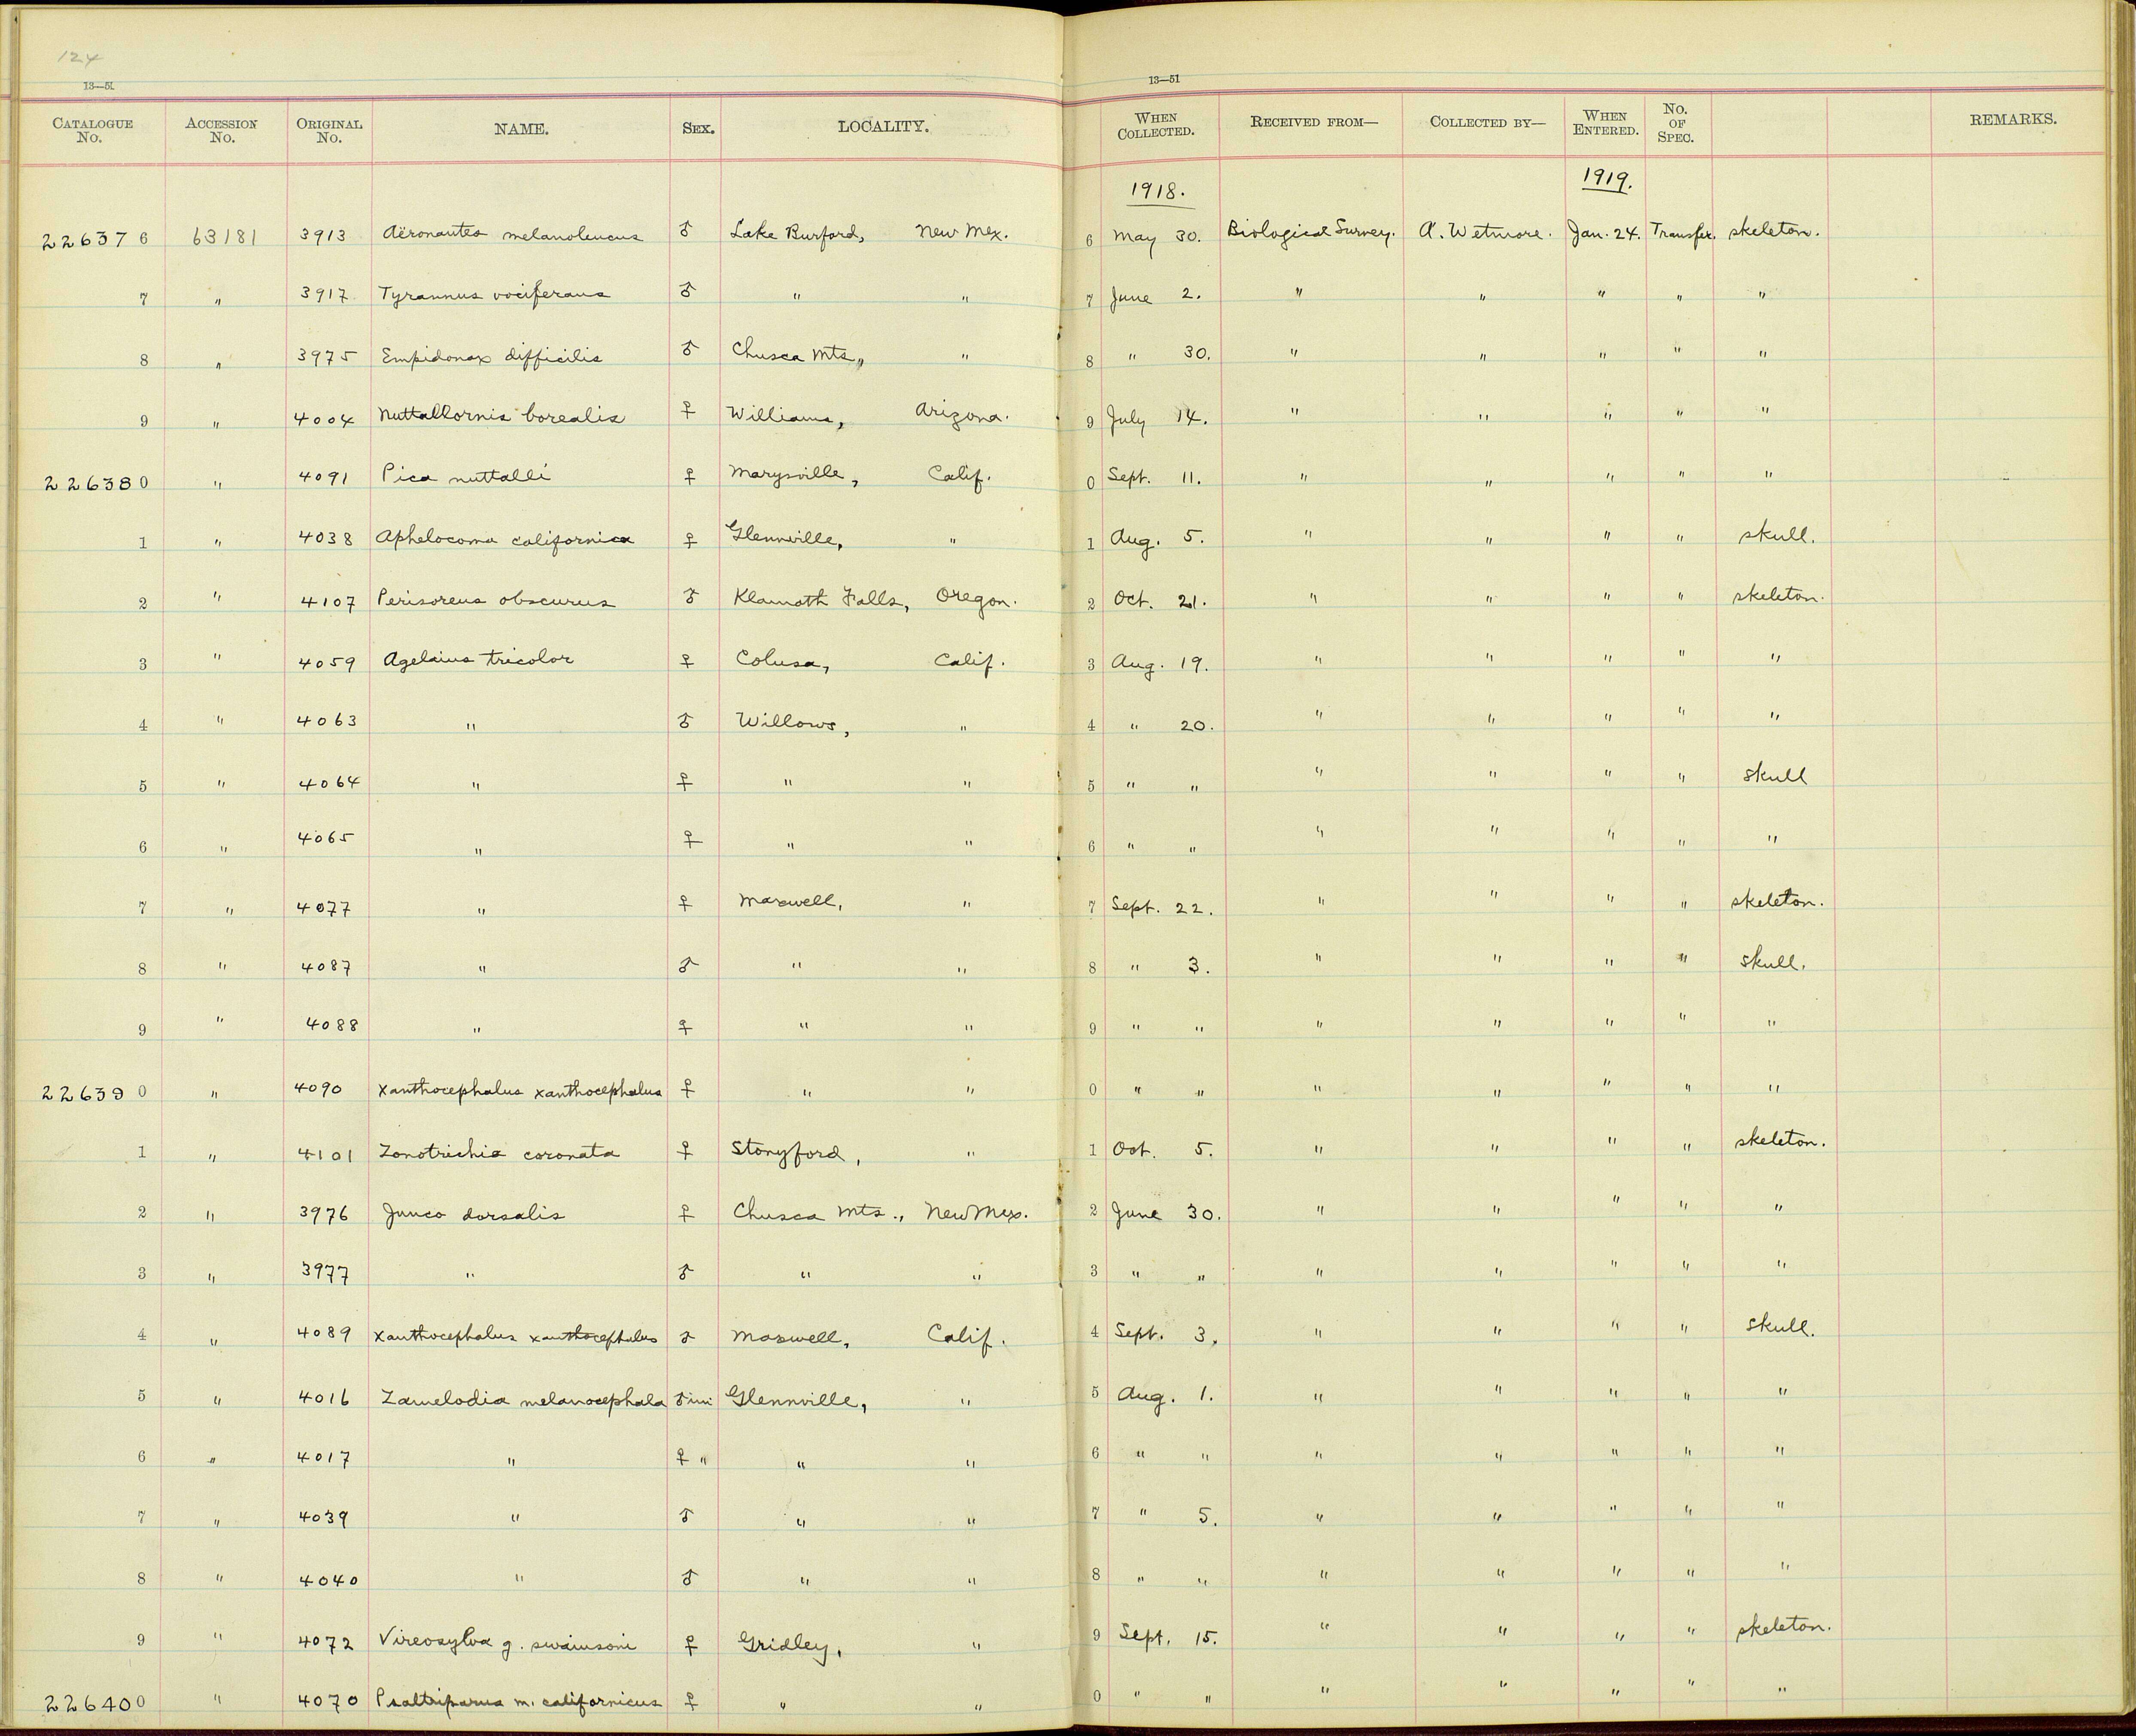 124
13—51 13—51
CATALOGUE No. ACCESSION No. ORIGINAL No. NAME. SEX. LOCALITY. WHEN COLLECTED. RECEIVED FROM— COLLECTED BY— WHEN ENTERED. No. OF SPEC. REMARKS.
1918. 1919.
226376 63181 3913 Aëronautes melanoleucus ♂ Lake Burford, New Mex. 6 May 30. Biological Survey. A. Wetmore. Jan. 24. Transfer. skeleton.
7 " 3917 Tyrannus vociferans ♂ " " 7 June 2. " " " " "
8 " 3975 Empidonax difficilis ♂ Chusca Mts., " 8 " 30. " " " " "
9 " 4004 Nuttallornis borealis ♀ Williams, Arizona. 9 July 14. " " " " "
226380 " 4091 Pica nuttalli ♀ Marysville, Calif. 0 Sept. 11. " " " " "
1 " 4038 Aphelocoma californica ♀ Glennville, " 1 Aug. 5. " " " " skull.
2 " 4107 Perisoreus obscurus ♂ Klamath Falls, Oregon. 2 Oct. 21. " " " " skeleton.
3 " 4059 Agelaius tricolor ♀ Colusa, Calif. 3 Aug. 19. " " " " "
4 " 4063 " ♂ Willows, " 4 " 20. " " " " "
5 " 4064 " ♀ " " 5 " " " " " " skull
6 " 4065 " ♀ " " 6 " " " " " " "
7 " 4077 " ♀ Maxwell, " 7 Sept. 22. " " " " skeleton.
8 " 4087 " ♂ " " 8 " 3. " " " " skull.
9 " 4088 " ♀ " " 9 " " " " " " "
226390 " 4090 Xanthocephalus xanthocephalus ♀ " " 0 " " " " " " "
1 " 4101 Zonotrichia coronata ♀ Stonyford, " 1 Oct. 5. " " " " skeleton.
2 " 3976 Junco dorsalis ♀ Chusca Mts., New Mex. 2 June 30. " " " " "
3 " 3977 " ♂ " " 3 " " " " " " "
4 " 4089 Xanthocephalus xanthocephalus ♂ Maxwell, Calif. 4 Sept. 3. " " " " skull.
5 " 4016 Zamelodia melanocephala ♂ im Glennville, " 5 Aug. 1. " " " " "
6 " 4017 " ♀ " " " 6 " " " " " " "
7 " 4039 " ♂ " " 7 " 5. " " " " "
8 " 4040 " ♂ " " 8 " " " " " " "
9 " 4072 Vireosylva g. swainsoni ♀ Gridley, " 9 Sept. 15. " " " " skeleton.
226400 " 4070 Psaltriparus m. californicus ♀ " " 0 " " " " " " "